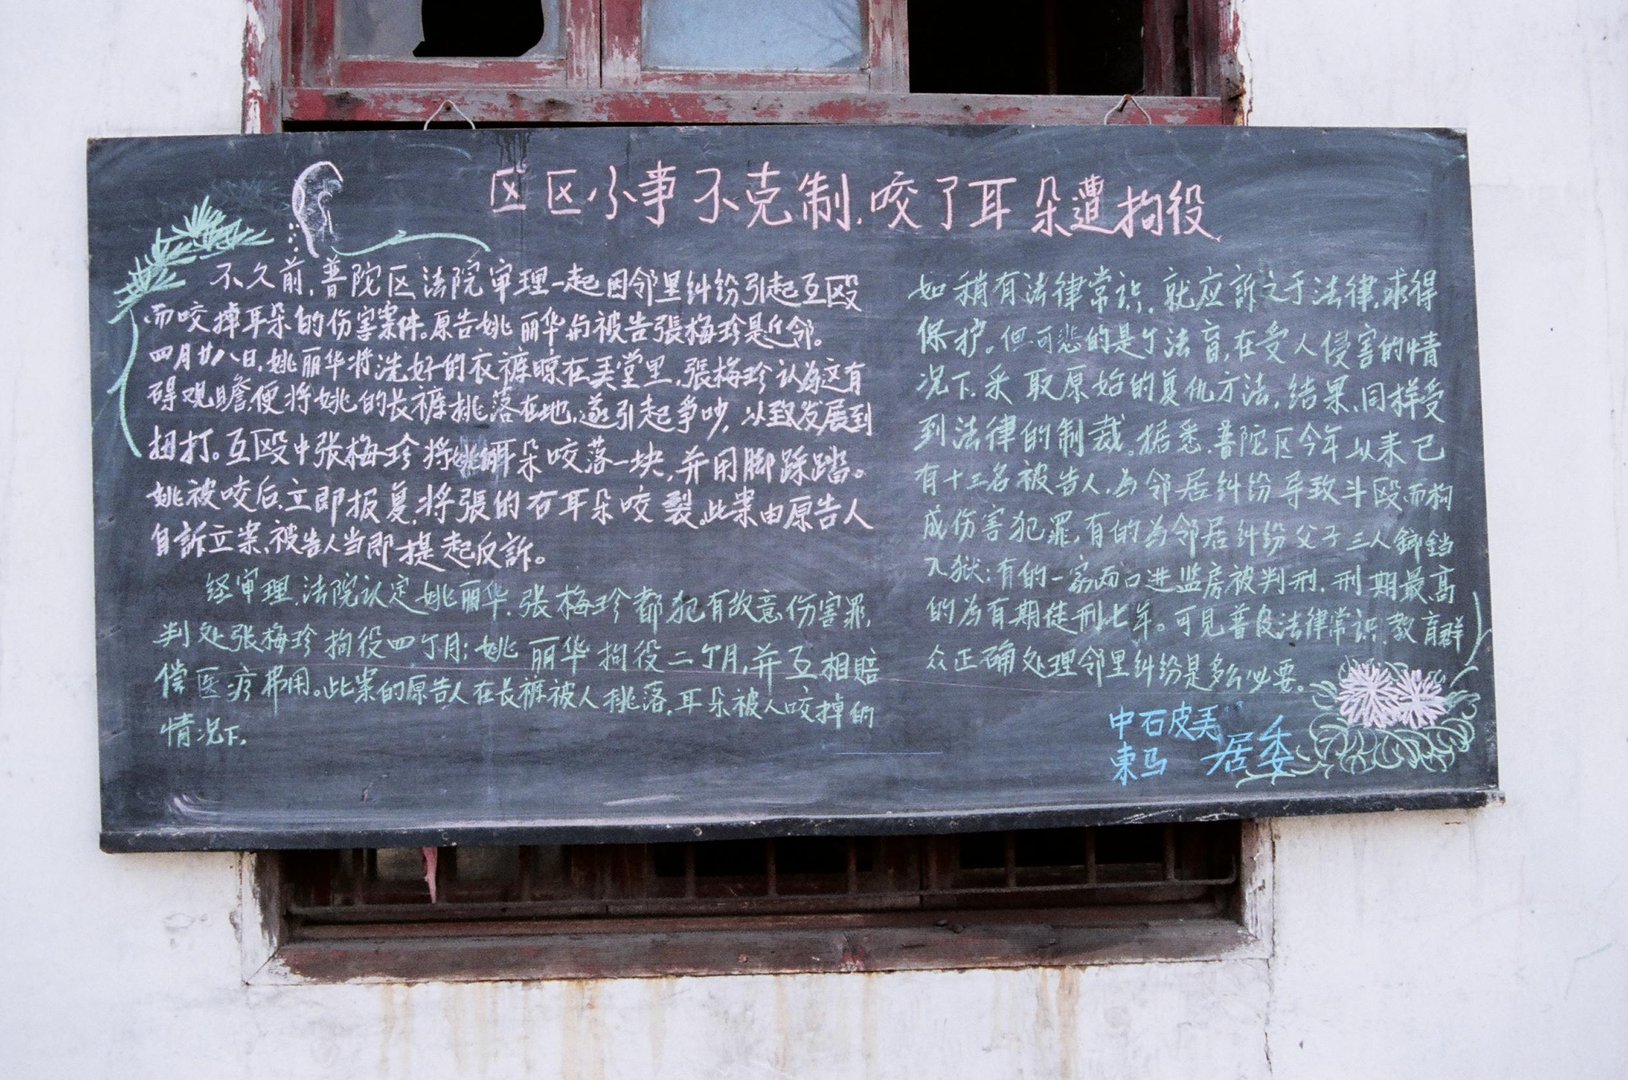 区区小事不克制，咬了耳朵遭拘役
不久前，普陀区法院审理一起因邻里纠纷引起互殴
而咬掉耳朵的伤害案件。原告姚丽华与被告張梅珍是近邻。
四月廿八日，姚丽华将洗好的衣裤晾在弄堂里，張梅珍认为这有
碍观瞻，便将姚的长裤挑落在地，遂引起争吵，以致发展到
扭打。互殴中张梅珍将姚的耳朵咬落一块，并用脚踩踏。
姚被咬后，立即报复，将張的右耳朵咬裂。此案由原告人
自訴立案，被告人当即提起反訴。
经审理，法院认定姚丽华、张梅珍都犯有故意伤害罪，
判处张梅珍拘役四个月；姚丽华拘役二个月，并互相赔
偿医疗费用。此案的原告人在长裤被人挑落，耳朵被人咬掉的
情况下，
如稍有法律常识，就应訴之于法律，求得
保护。但可悲的是个法盲，在受人侵害的情
况下，采取原始的复仇方法，结果，同样受
到法律的制裁。据悉，普陀区今年以来已
有十三名被告人，为邻居纠纷导致斗殴而构
成伤害犯罪，有的为邻居纠纷父子三人锒铛
入狱；有的一家两口进监房被判刑，刑期最高
的为有期徒刑七年。可见普及法律常识，教育群
众正确处理邻里纠纷是多么必要。
中石皮弄
東马 居委